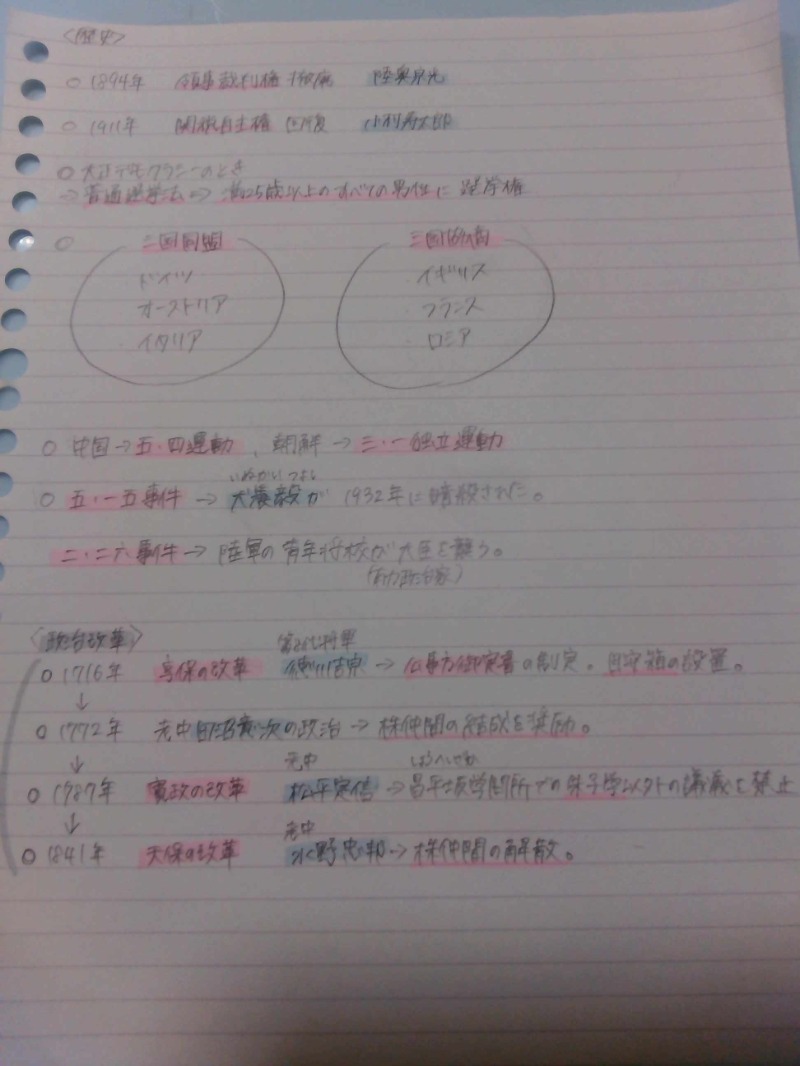 <歴史>
○ 1894年 領事裁判権 撤廃 陸奥宗光
○ 1911年 関税自主権 回復 小村寿太郎
○ 大正デモクラシーのとき
→ 普通選挙法 → 満25歳以上のすべての男性に選挙権
○ 三国同盟 三国協商
ドイツ ・イギリス
オーストリア ・フランス
イタリア ・ロシア
○ 中国→五・四運動、朝鮮→三・一独立運動
いぬかいつよし
○ 五・一五事件 → 犬養毅が 1932年に暗殺された。
二・二六事件→ 陸軍の青年将校が大臣を襲う。
(有力政治家)
<政治改革>
第8代将軍
○ 1716年 享保の改革 徳川吉宗 → 公事方御定書の制定。目安箱の設置。
↓
○ 1772年 老中田沼意次の政治→ 株仲間の結成を奨励。
↓
老中 しょうへいざか
○ 1787年 寛政の改革 松平定信→昌平坂学問所での朱子学以外の講義を禁止
↓
老中
○ 1841年 天保の改革 水野忠邦→株仲間の解散。